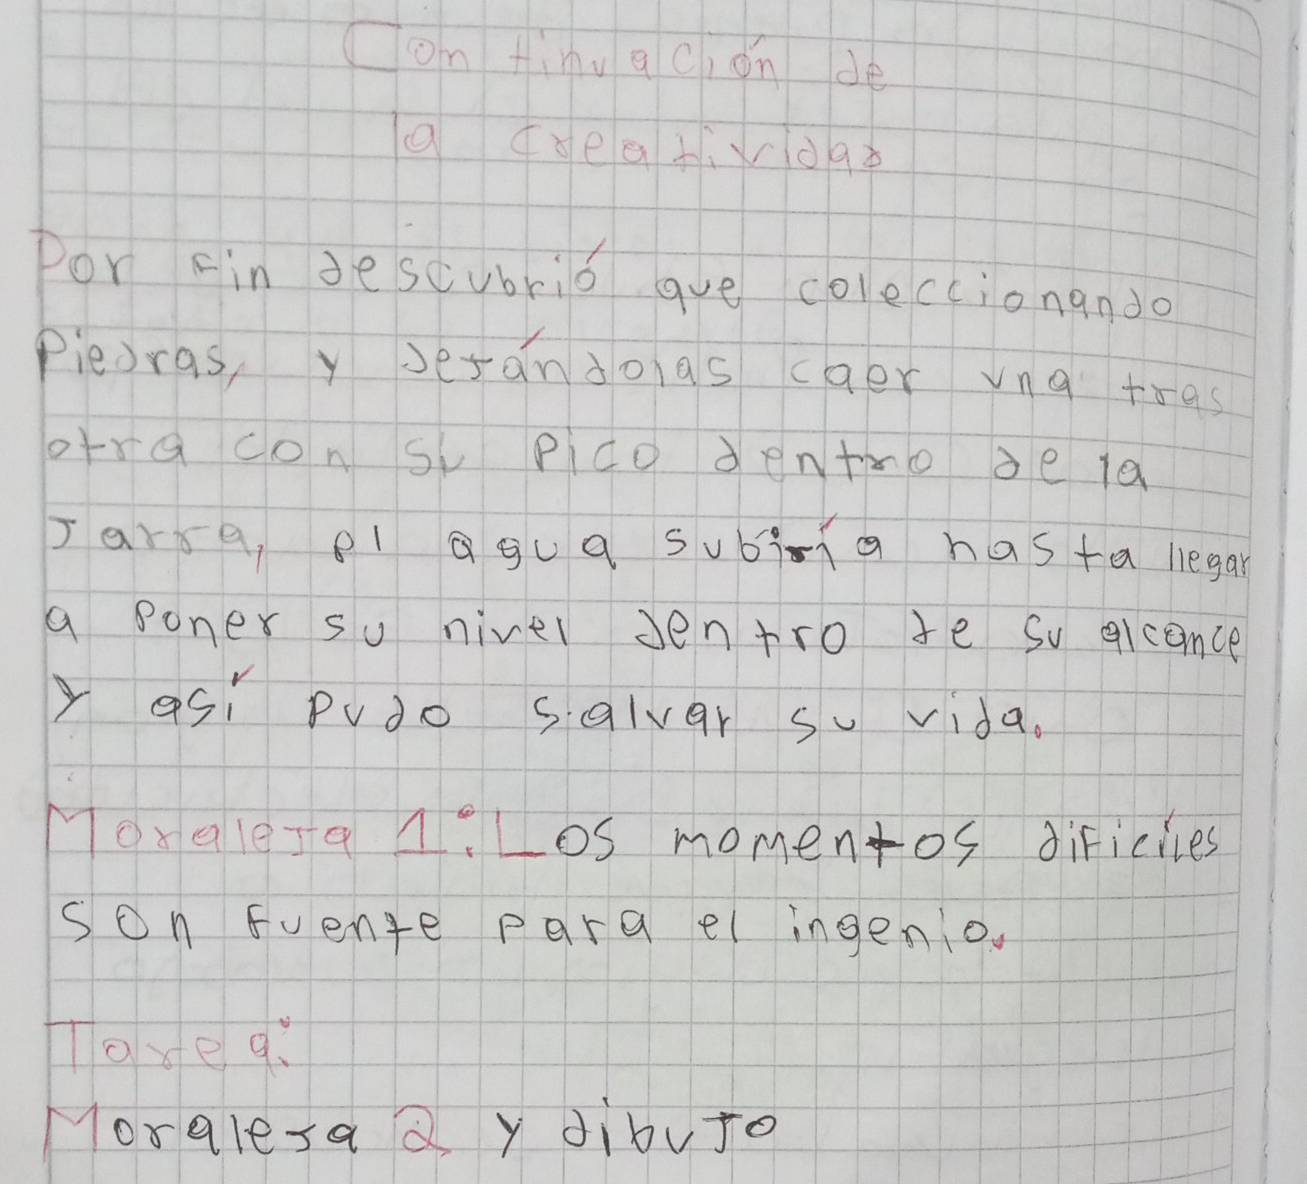 Continuación de
la creatividad
Por fin descubrió que coleccionando
Piedras, y dejándolas caer una tras
otra con su pico dentro de la
Jarra, el agua subiría hasta llegar
a poner su nivel dentro de su alcance
y así pudo salvar su vida.
Moraleja 1: Los momentos dificíles
son fuente para el ingenio.
Tarea:
Moraleja 2 y dibujo